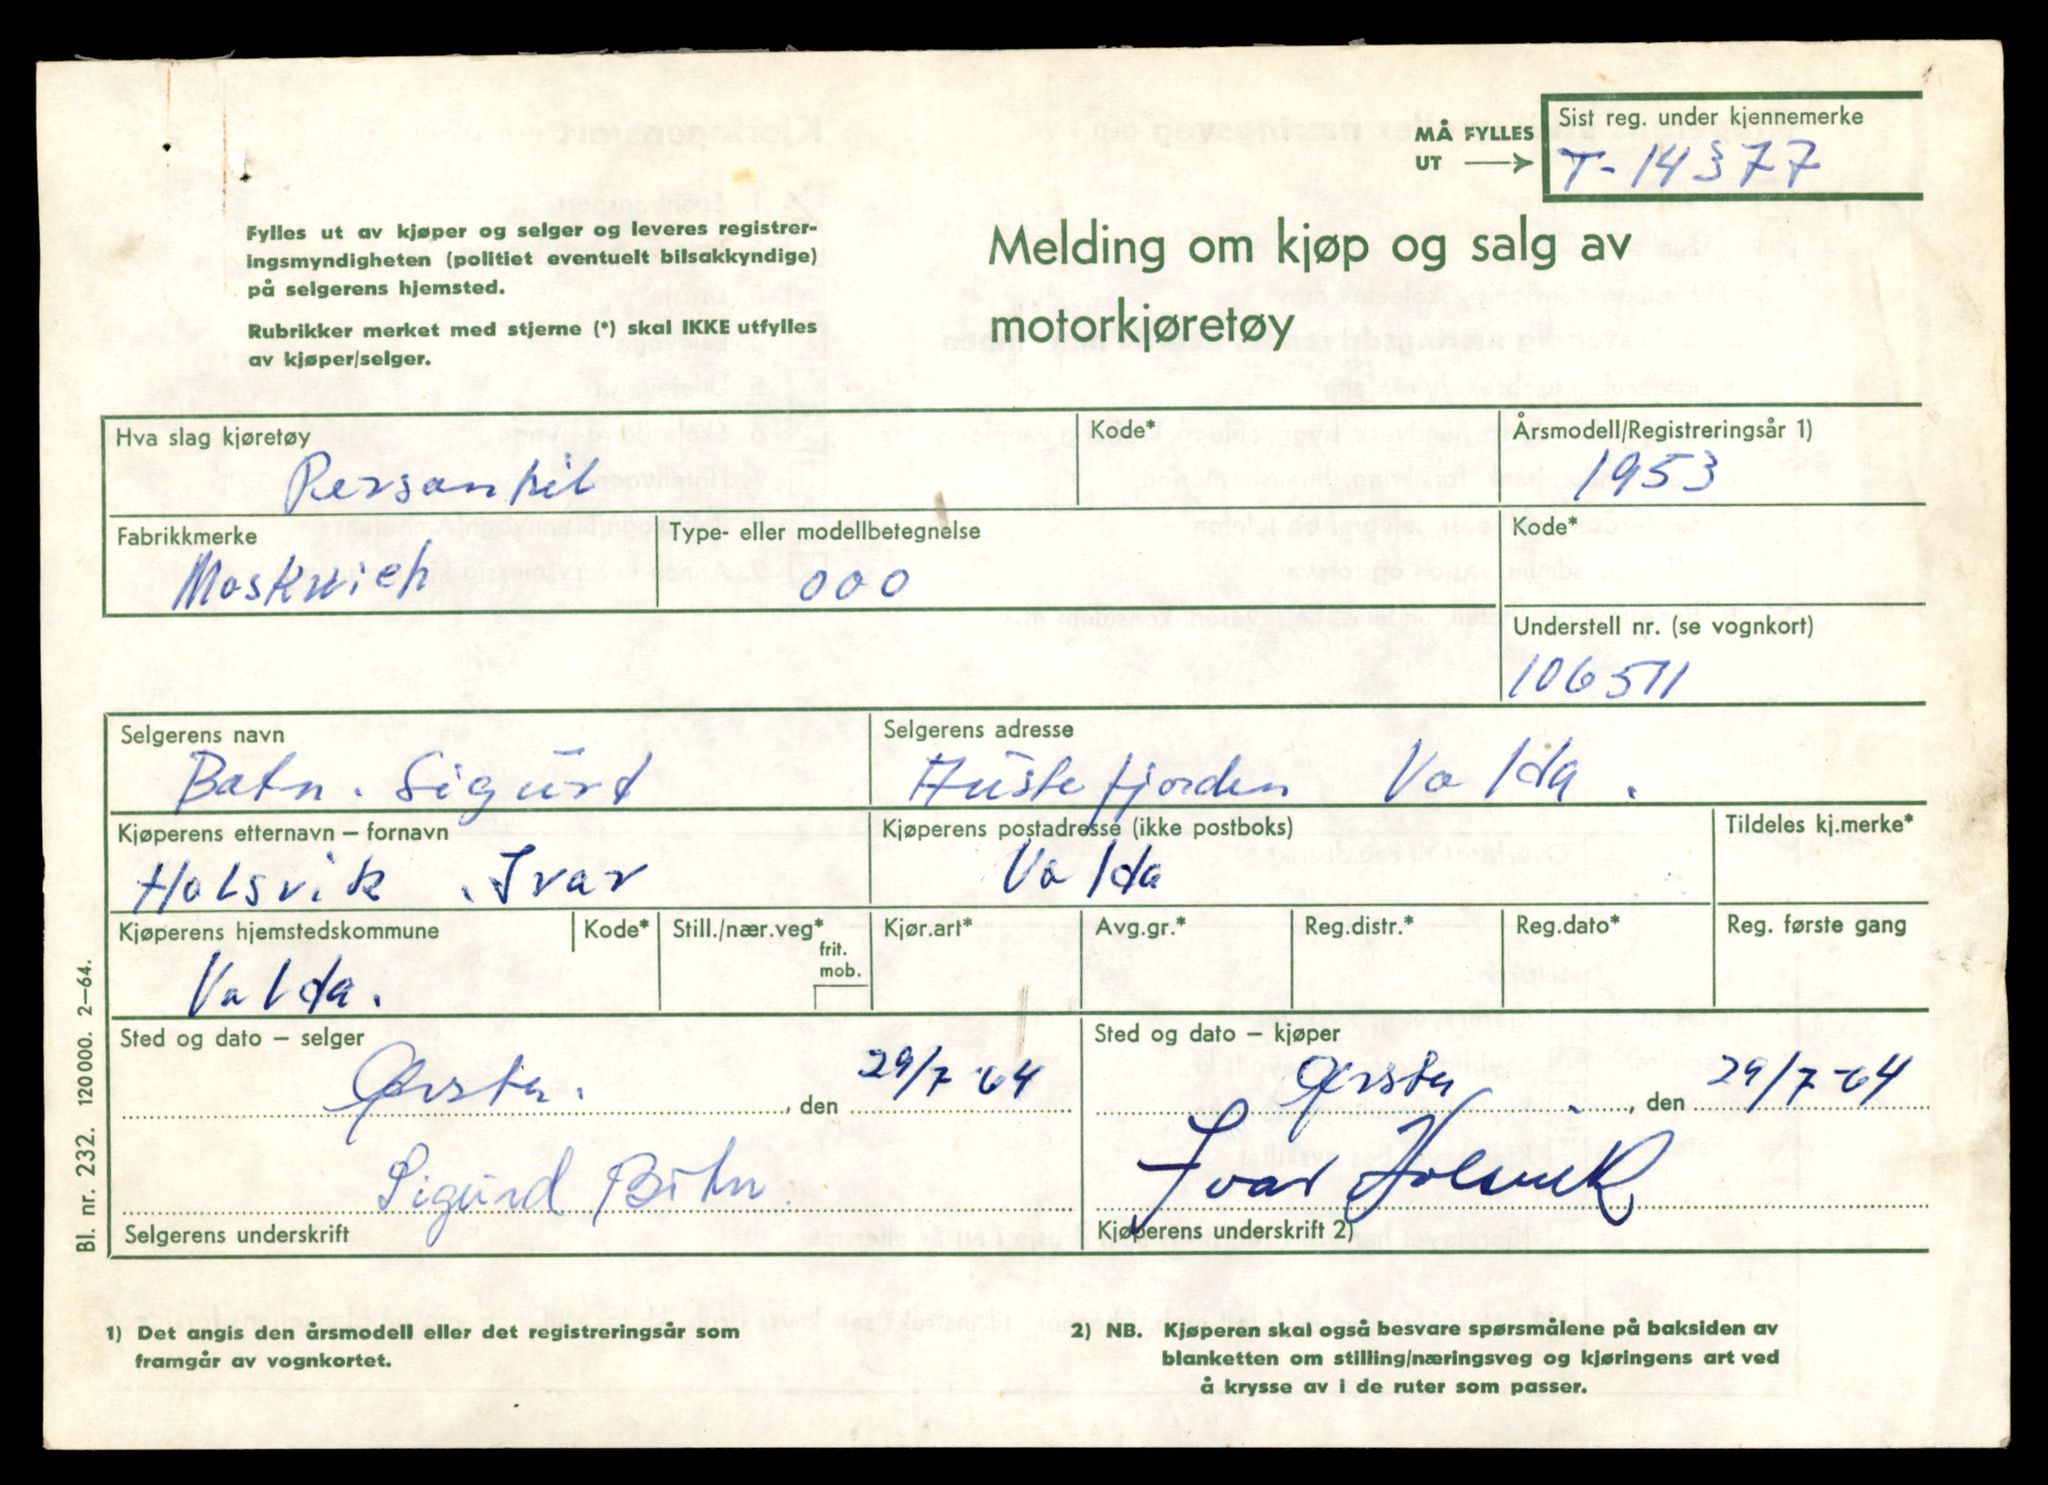 MÅ FYLLES UT
Sist reg. under kjennemerke
T-14377
Fylles ut av kjøper og selger og leveres registrer-
ingsmyndigheten (politiet eventuelt bilsakkyndige)
på selgerens hjemsted.
Rubrikker merket med stjerne (*) skal IKKE utfylles
av kjøper/selger.
Melding om kjøp og salg av
motorkjøretøy
Hva slag kjøretøy
Personbil
Kode*
Årsmodell/Registreringsår 1)
1953
Fabrikkmerke
Moskvich
Type- eller modellbetegnelse
000
Kode*
Understell nr. (se vognkort)
106511
Selgerens navn
Sigurd
Selgerens adresse
Austefjorden Volda.
Kjøperens etternavn – fornavn
Holsvik, Ivar
Kjøperens postadresse (ikke postboks)
Volda
Tildeles kj.merke*
Kjøperens hjemstedskommune
Volda.
Kode*
Still./nær.veg*
frit.
mob.
Kjør.art*
Avg.gr.*
Reg.distr.*
Reg.dato*
Reg. første gang
Sted og dato – selger
Ørsta. , den 29/7-64
Sigurd
Selgerens underskrift
Sted og dato – kjøper
Ørsta , den 29/7-64
Ivar Holsvik
Kjøperens underskrift 2)
Bl. nr. 232. 120 000. 2–64.
1) Det angis den årsmodell eller det registreringsår som
framgår av vognkortet.
2) NB. Kjøperen skal også besvare spørsmålene på baksiden av
blanketten om stilling/næringsveg og kjøringens art ved
å krysse av i de ruter som passer.